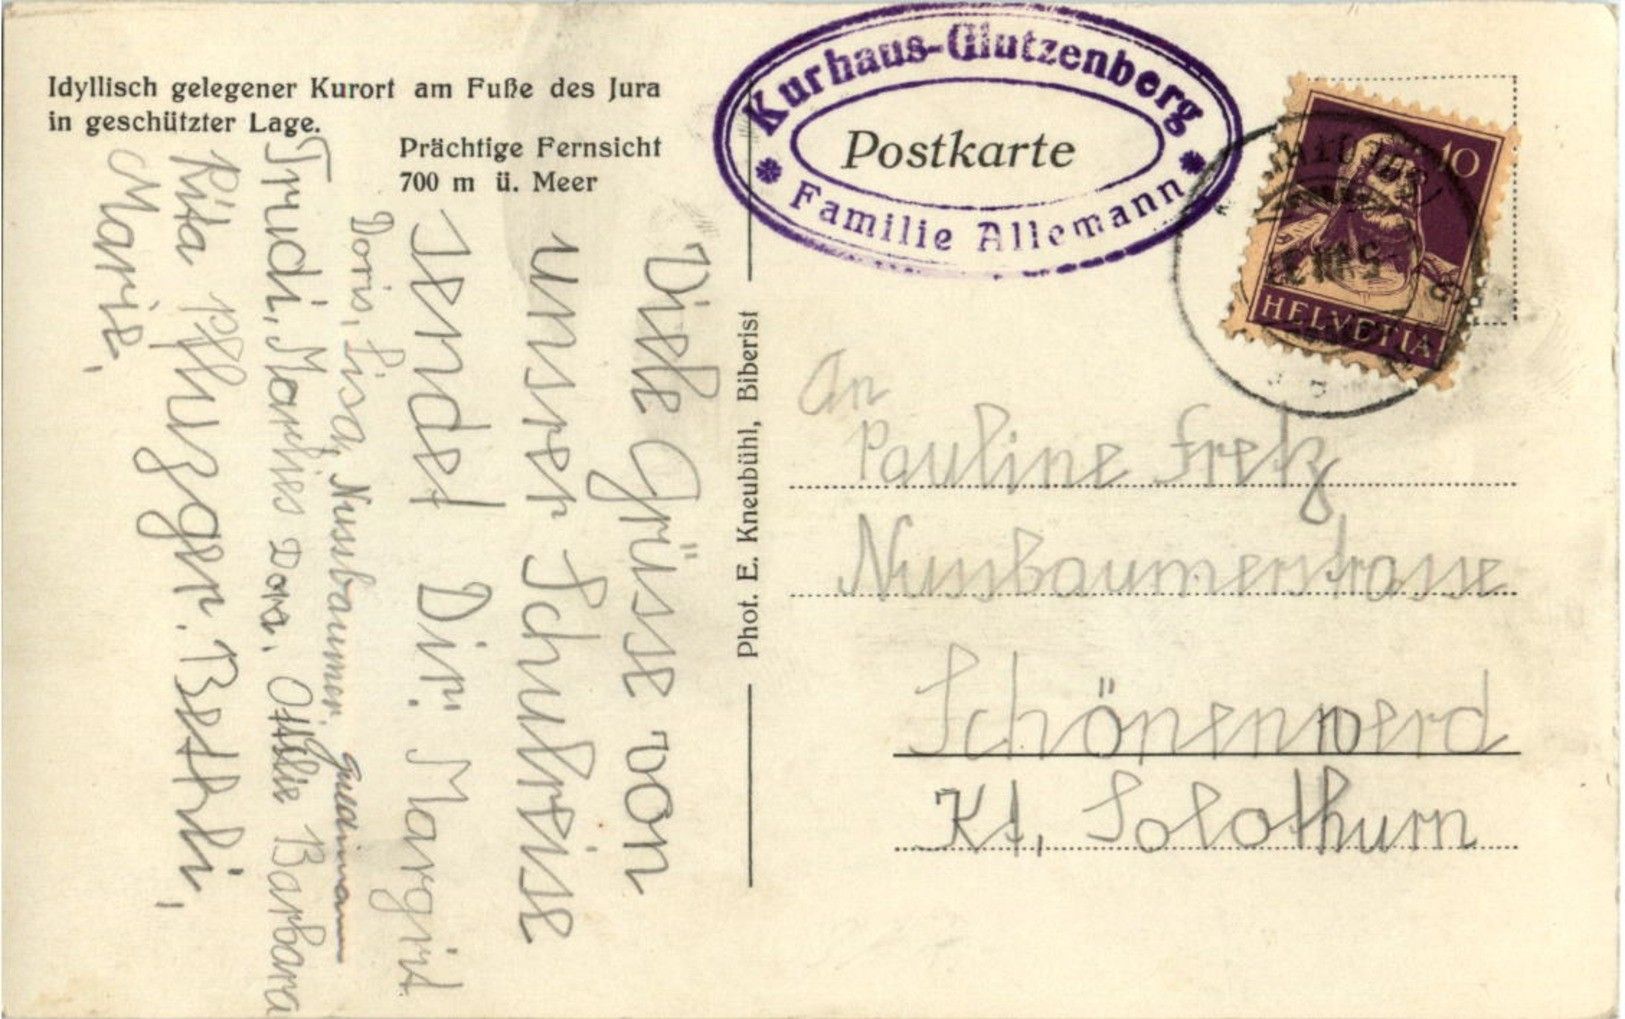 Idyllisch gelegener Kurort am Fuße des Jura
in geschützter Lage.
Prächtige Fernsicht
700 m ü. Meer
Kurhaus-Glutzenberg
Postkarte
Familie Allemann
10
HELVETIA
Phot. E. Kneubühl, Biberist
Viele Grüsse von
unsrer Schulreise
sendet Dir. Margirit
Doris, Lisa, Nussbaumer,
Trudi, Marlies Dora. Ottilie Barbara
Rita Pfluger. Bethli,
Marie,
An
Pauline Fretz
Nussbaumerstrasse
Schönenwerd
Kt. Solothurn